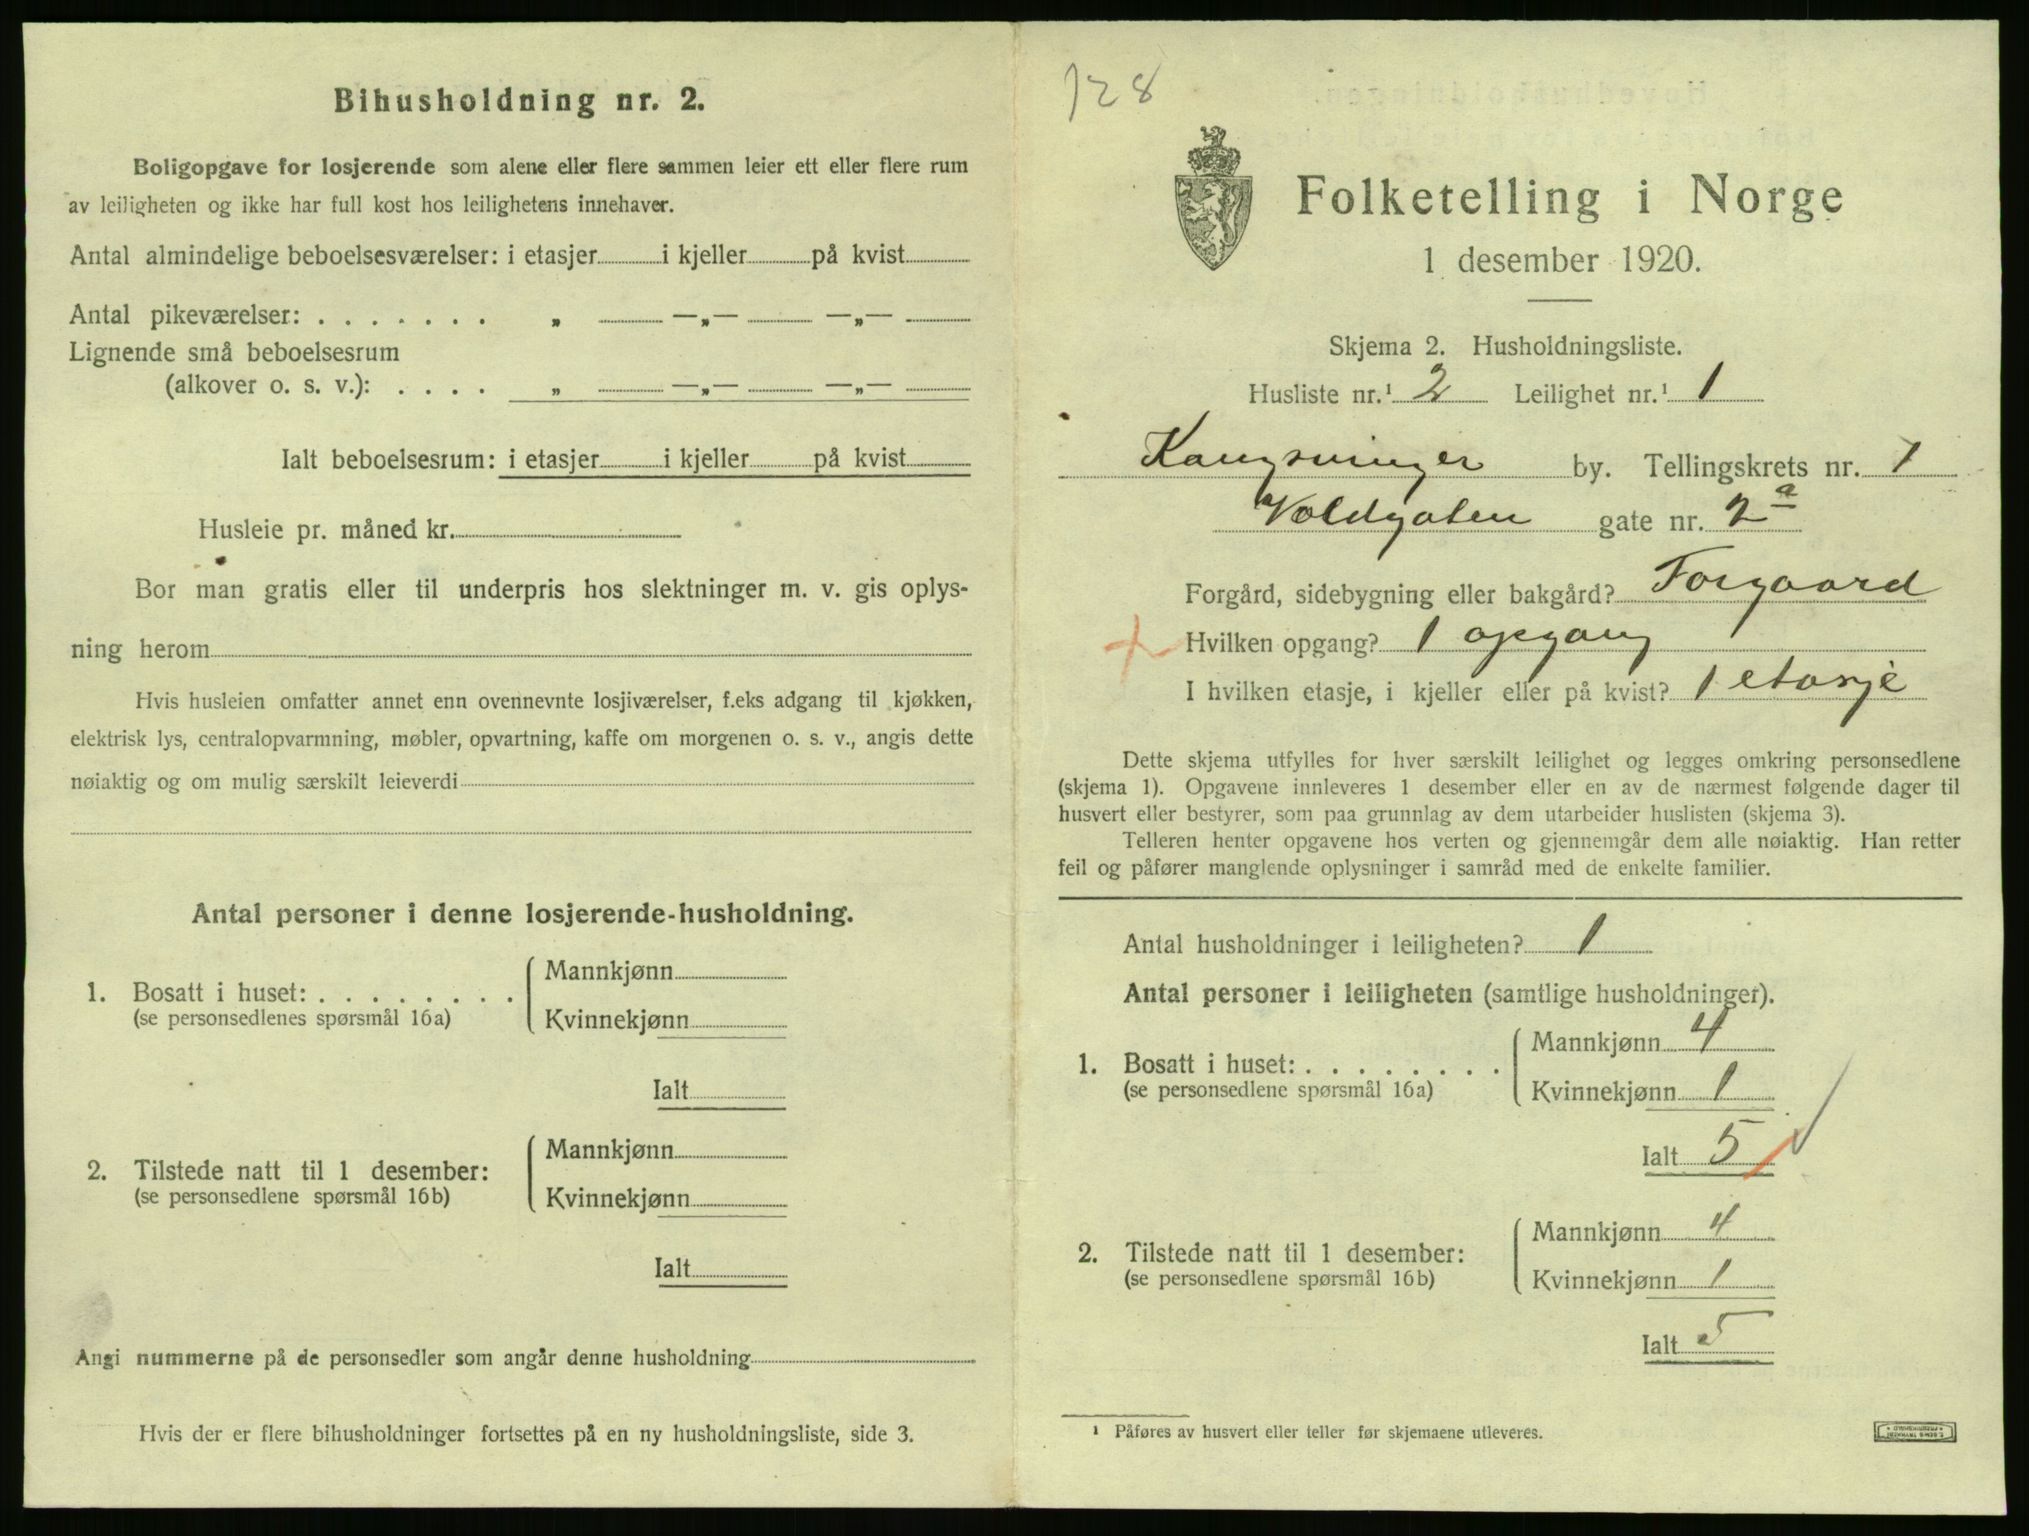 Bihusholdning nr. 2.
Boligopgave for losjerende som alene eller flere sammen leier ett eller flere rum
av leiligheten og ikke har full kost hos leilighetens innehaver.
Antal almindelige beboelsesværelser: i etasjer i kjeller på kvist
Antal pikeværelser: . . . . . . . „ —„— —„—
Lignende små beboelsesrum
(alkover o. s. v.): . . . . „ —„— —„—
Ialt beboelsesrum: i etasjer i kjeller på kvist
Husleie pr. måned kr.
Bor man gratis eller til underpris hos slektninger m. v. gis oplys-
ning herom
Hvis husleien omfatter annet enn ovennevnte losjiværelser, f.eks adgang til kjøkken,
elektrisk lys, centralopvarmning, møbler, opvartning, kaffe om morgenen o. s. v., angis dette
nøiaktig og om mulig særskilt leieverdi
Antal personer i denne losjerende-husholdning.
1. Bosatt i huset: . . . . . . . .
(se personsedlenes spørsmål 16a)
Mannkjønn
Kvinnekjønn
Ialt
2. Tilstede natt til 1 desember:
(se personsedlene spørsmål 16b)
Mannkjønn
Kvinnekjønn
Ialt
Angi nummerne på de personsedler som angår denne husholdning
Hvis der er flere bihusholdninger fortsettes på en ny husholdningsliste, side 3.
128
Folketelling i Norge
1 desember 1920.
Skjema 2. Husholdningsliste.
Husliste nr.¹ 2 Leilighet nr.¹ 1
Kongsvinger by. Tellingskrets nr. 1
Voldgaten gate nr. 2a
Forgård, sidebygning eller bakgård? Forgaard
Hvilken opgang? 1 opgang
I hvilken etasje, i kjeller eller på kvist? 1 etasje
Dette skjema utfylles for hver særskilt leilighet og legges omkring personsedlene
(skjema 1). Opgavene innleveres 1 desember eller en av de nærmest følgende dager til
husvert eller bestyrer, som paa grunnlag av dem utarbeider huslisten (skjema 3).
Telleren henter opgavene hos verten og gjennemgår dem alle nøiaktig. Han retter
feil og påfører manglende oplysninger i samråd med de enkelte familier.
Antal husholdninger i leiligheten? 1
Antal personer i leiligheten (samtlige husholdninger).
1. Bosatt i huset: . . . . . . . .
(se personsedlene spørsmål 16a)
Mannkjønn 4
Kvinnekjønn 1
Ialt 5
2. Tilstede natt til 1 desember:
(se personsedlene spørsmål 16b)
Mannkjønn 4
Kvinnekjønn 1
Ialt 5
¹ Påføres av husvert eller teller før skjemaene utleveres.